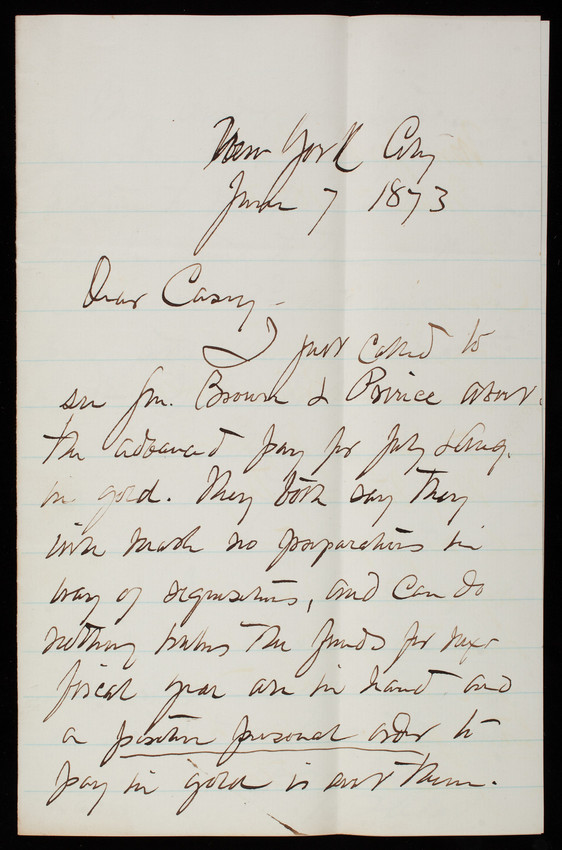 New York City
June 7 1873
Dear Casey -
I just called to
see Gen. Brown & Prince about
the advanced pay for July & Aug.
in gold. They both say they
will make no preparations in
way of requisitions, and can do
nothing unless the funds for next
fiscal year are in hand and
a positive personal order to
pay in gold is sent them.